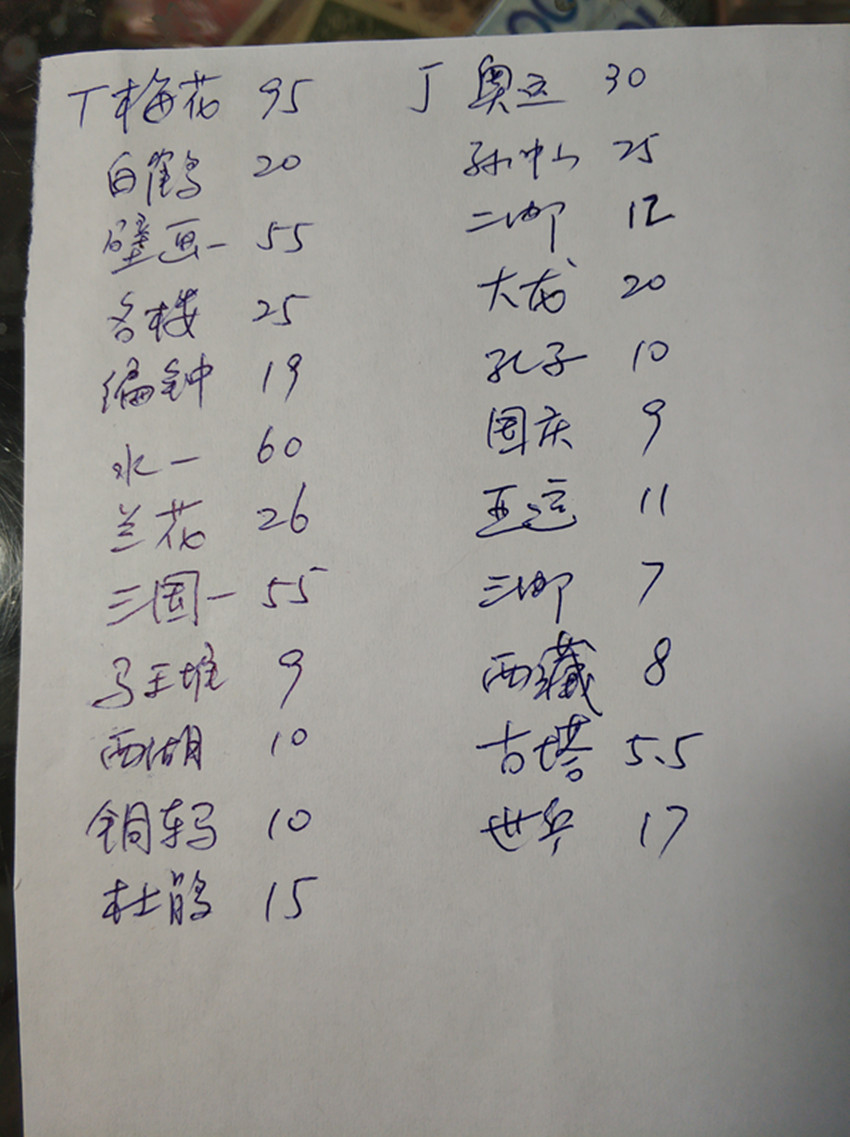 T梅花 95
白鹤 20
壁画一 55
名楼 25
编钟 19
水一 60
兰花 26
三国一 55
马王堆 9
西湖 10
铜车马 10
杜鹃 15
J 奥运 30
孙中山 25
二邮 12
大龙 20
孔子 10
国庆 9
亚运 11
三邮 7
西藏 8
古塔 5.5
世乒 17